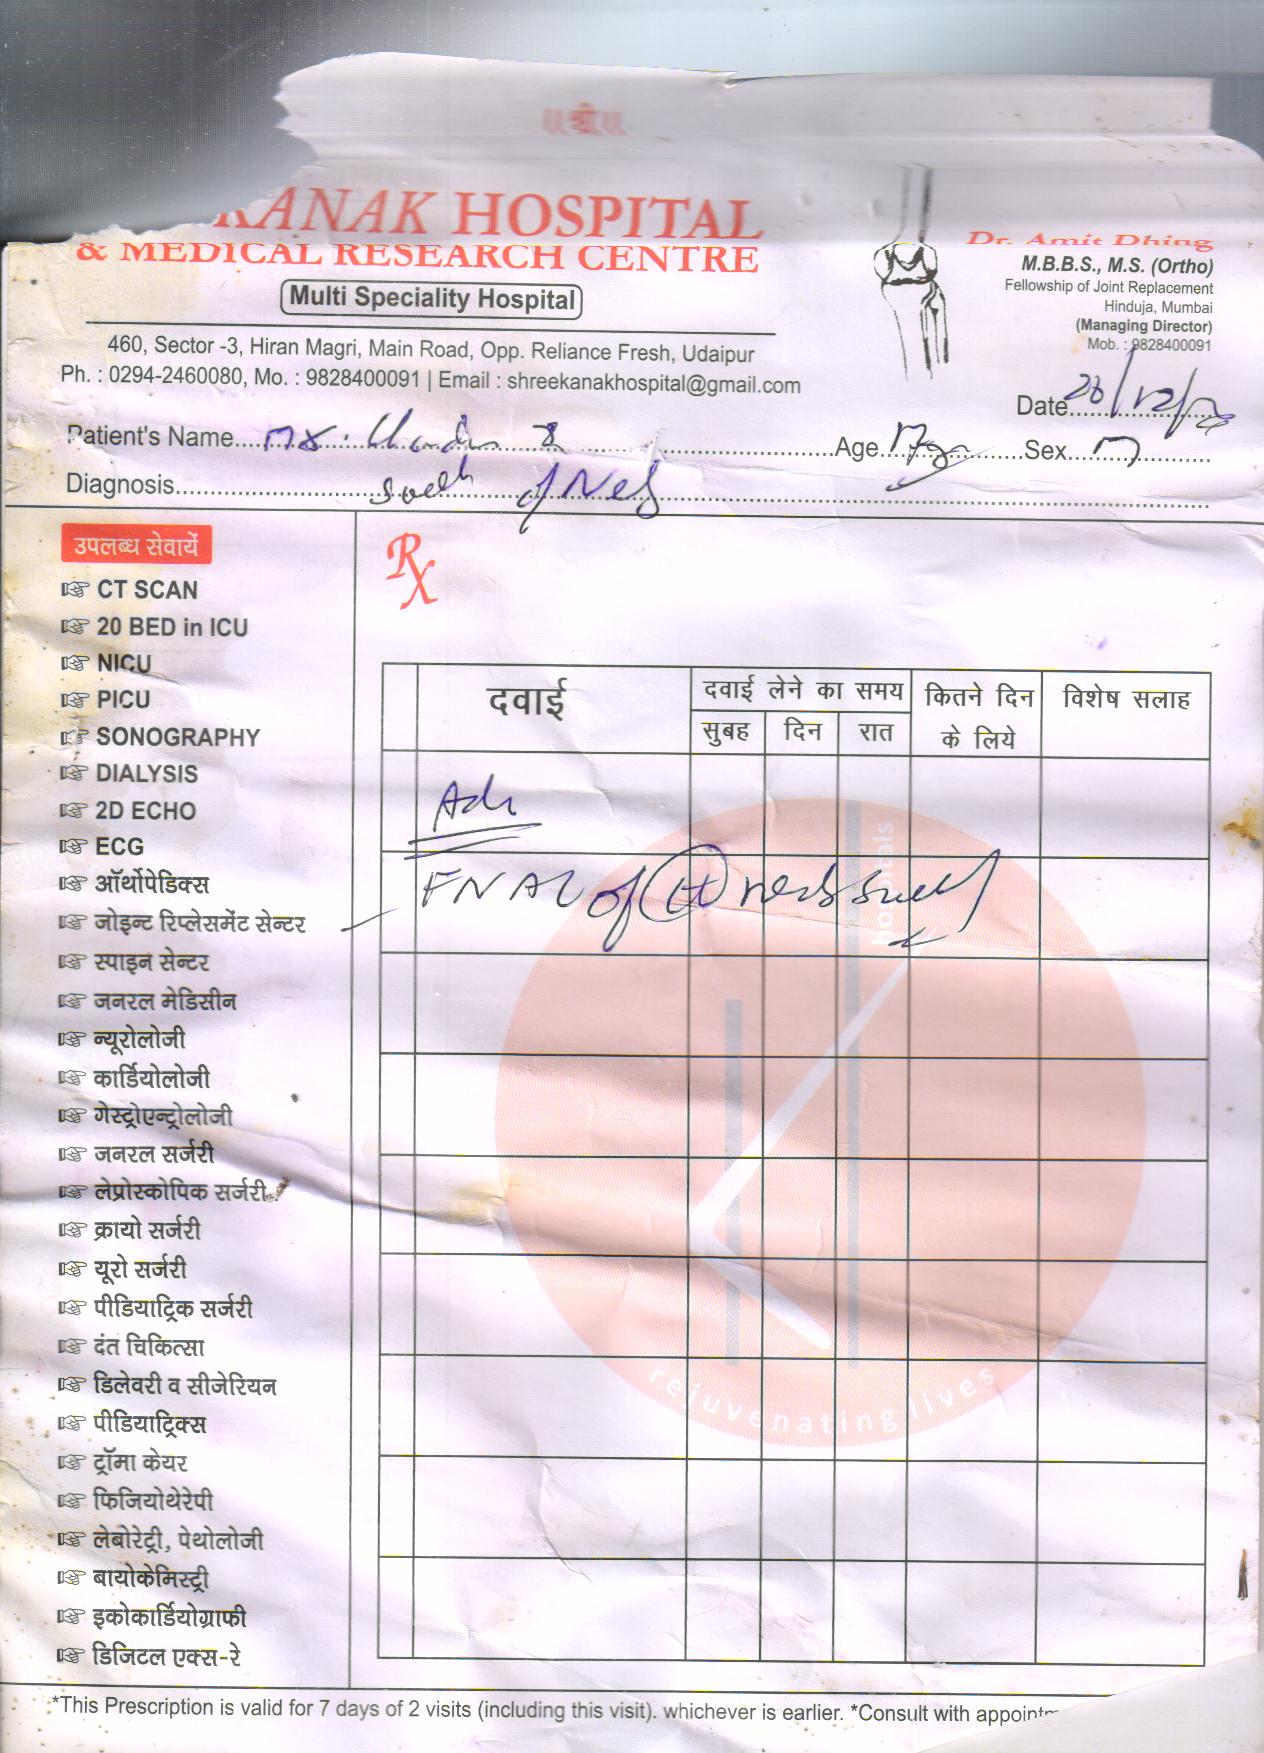 ॥श्री॥
KANAK HOSPITAL
& MEDICAL RESEARCH CENTRE
Multi Speciality Hospital
460, Sector -3, Hiran Magri, Main Road, Opp. Reliance Fresh, Udaipur
Ph. : 0294-2460080, Mo. : 9828400091 | Email : shreekanakhospital@gmail.com
Dr. Amit Dhing
M.B.B.S., M.S. (Ortho)
Fellowship of Joint Replacement
Hinduja, Mumbai
(Managing Director)
Mob. : 9828400091
Date
Patient's Name Age Sex M
Diagnosis of
उपलब्ध सेवायें
CT SCAN
20 BED in ICU
NICU
PICU
SONOGRAPHY
DIALYSIS
2D ECHO
ECG
ऑर्थोपेडिक्स
जोइन्ट रिप्लेसमेंट सेन्टर
स्पाइन सेन्टर
जनरल मेडिसीन
न्यूरोलोजी
कार्डियोलोजी
गेस्ट्रोएन्ट्रोलोजी
जनरल सर्जरी
लेप्रोस्कोपिक सर्जरी
क्रायो सर्जरी
यूरो सर्जरी
पीडियाट्रिक सर्जरी
दंत चिकित्सा
डिलेवरी व सीजेरियन
पीडियाट्रिक्स
ट्रॉमा केयर
फिजियोथेरेपी
लेबोरेट्री, पेथोलोजी
बायोकेमिस्ट्री
इकोकार्डियोग्राफी
डिजिटल एक्स-रे
Rx
दवाई दवाई लेने का समय कितने दिन के लिये विशेष सलाह
सुबह दिन रात
Adv
FNAC of
hospitals
rejuvenating lives
*This Prescription is valid for 7 days of 2 visits (including this visit). whichever is earlier. *Consult with appointm